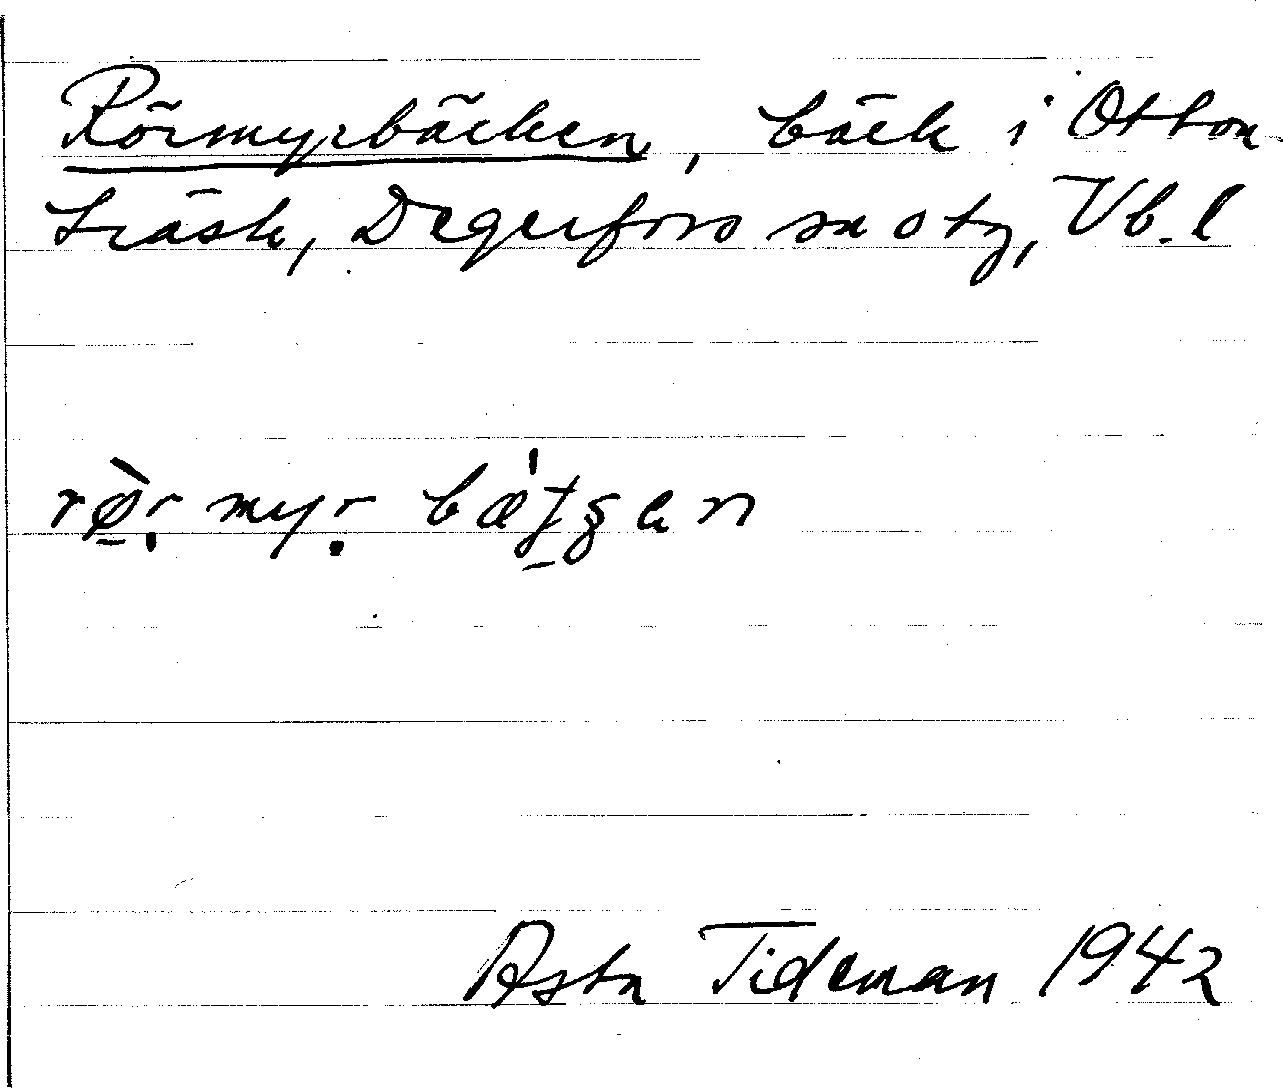 Rörmyrbäcken, bäck i Otton-
träsk, Degerfors sn o tg, Vb. l
rø̱̀r̥ myr̥ bæ̍tʂen
Asta Tideman 1942